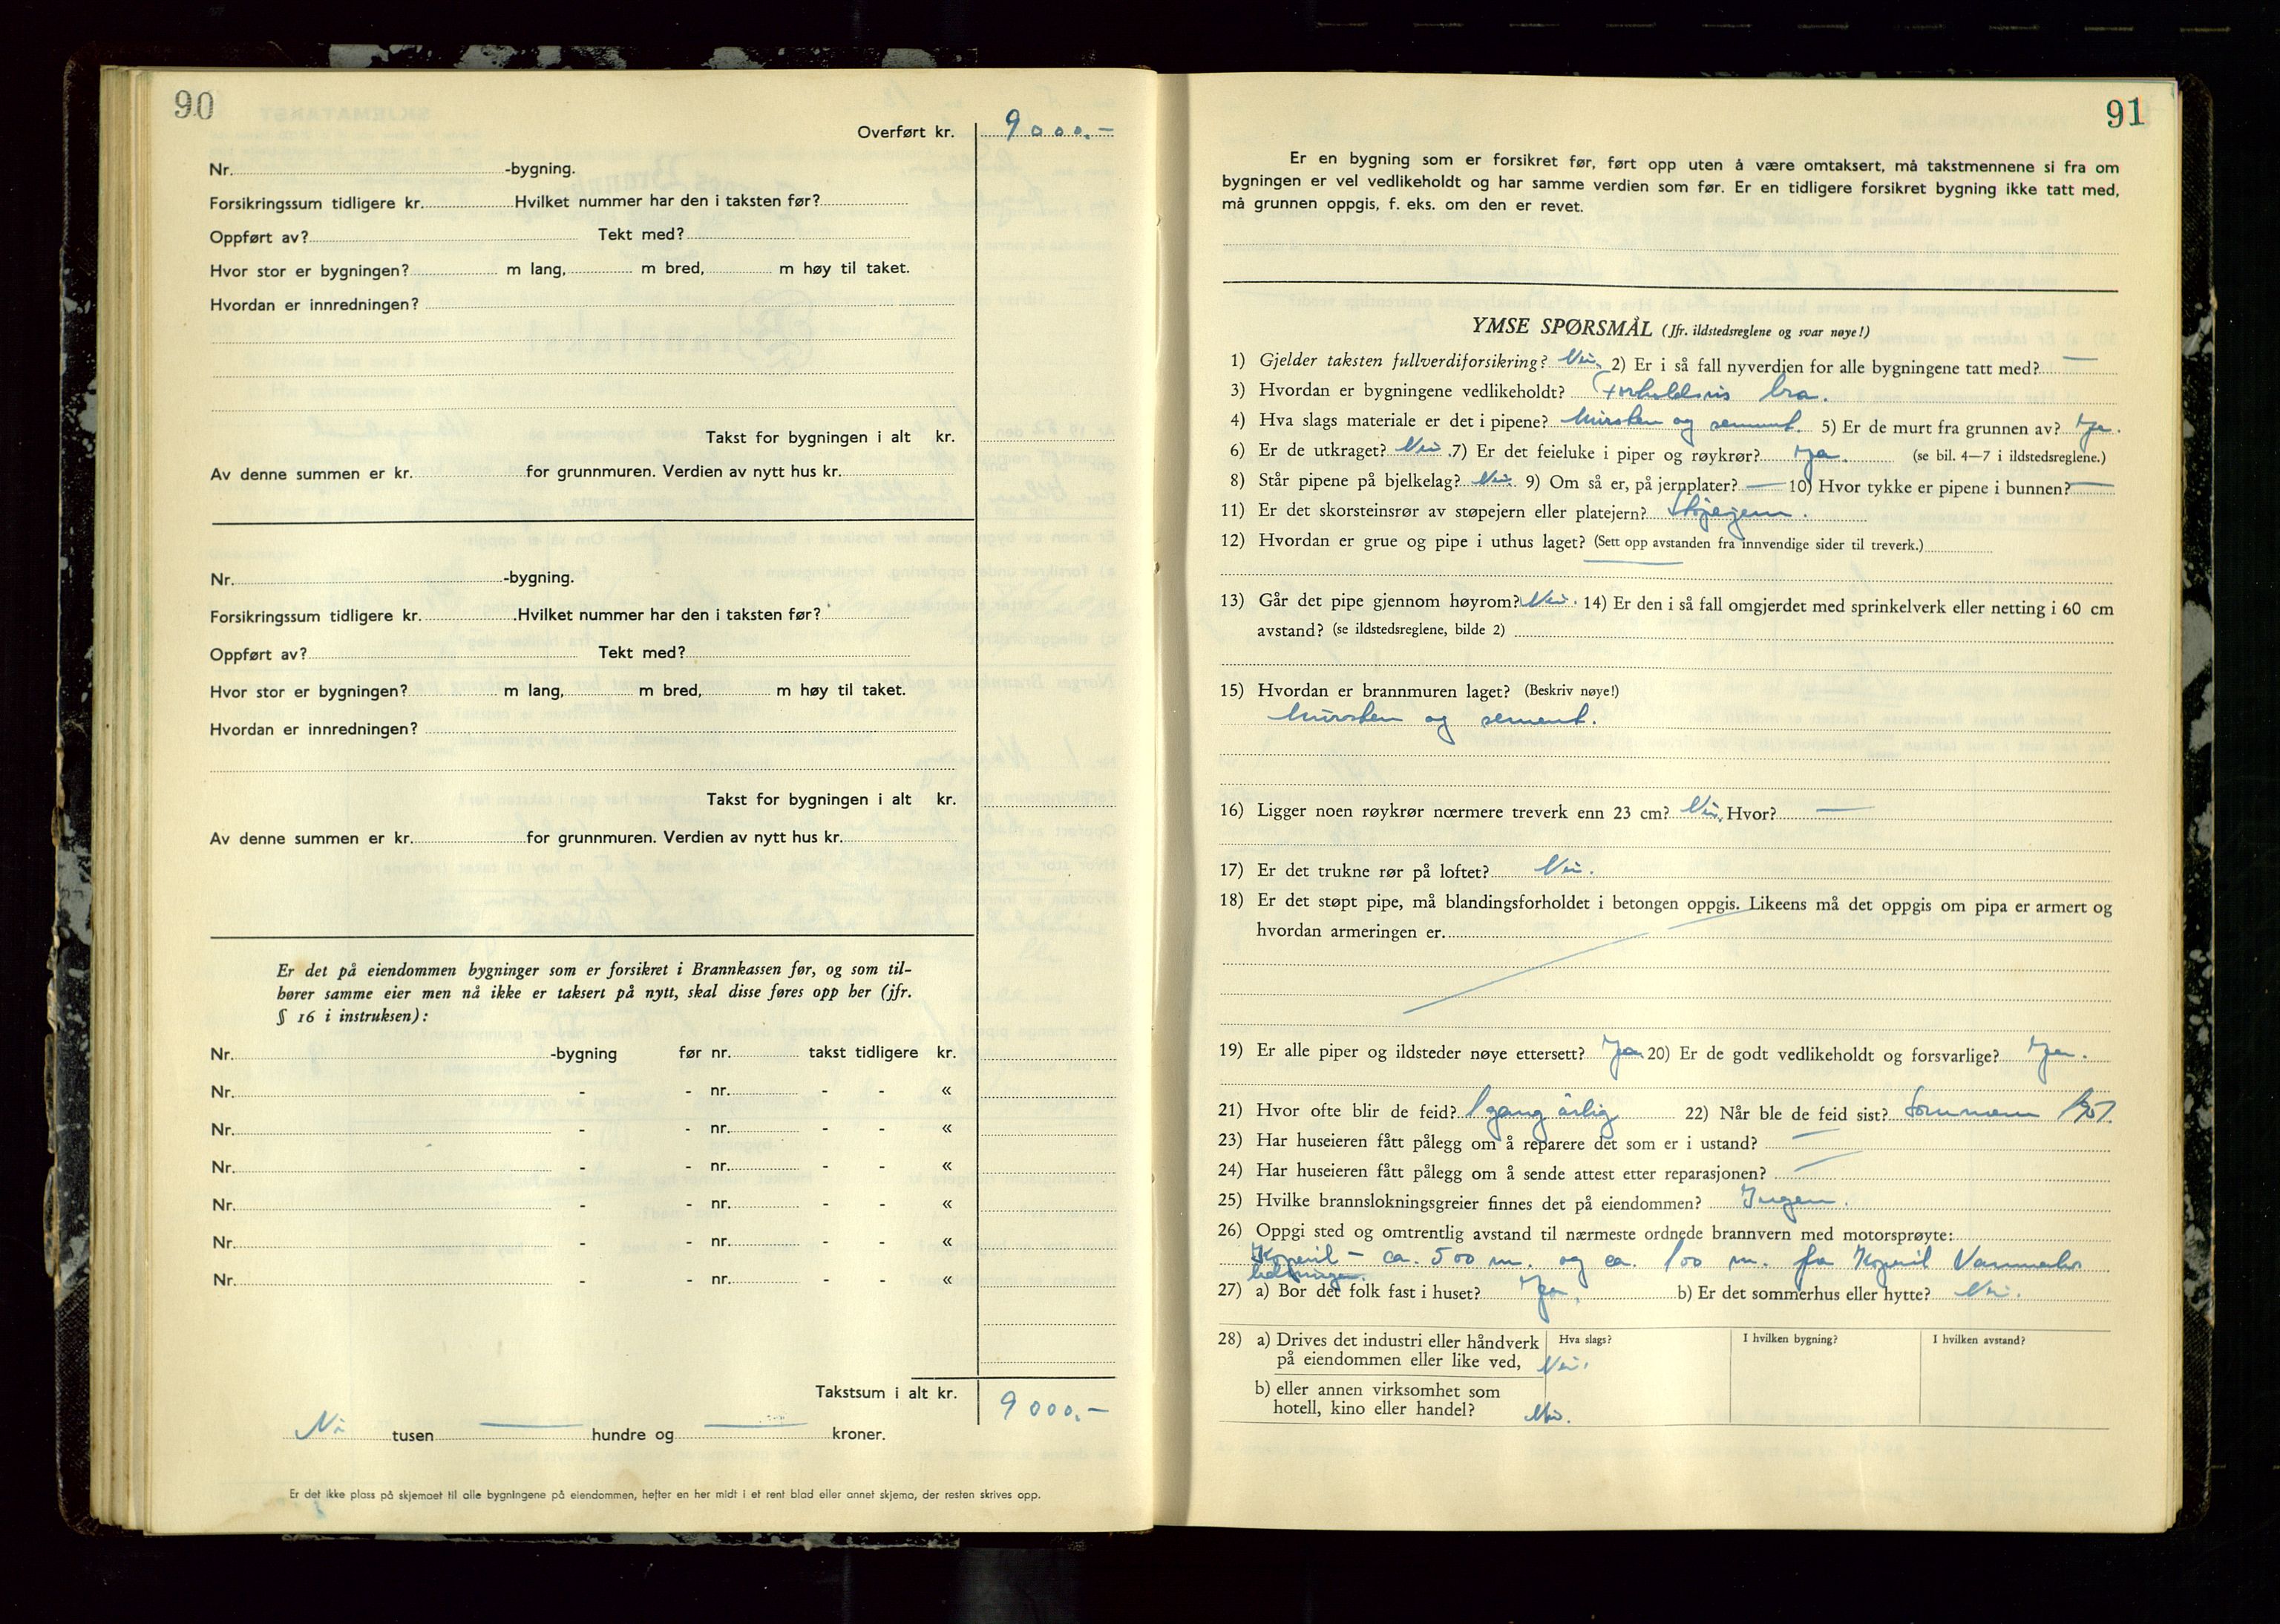 90
Overført kr. 9000.-
Nr. -bygning.
Forsikringssum tidligere kr. Hvilket nummer har den i taksten før?
Oppført av? Tekt med?
Hvor stor er bygningen? m lang, m bred, m høy til taket.
Hvordan er innredningen?
Takst for bygningen i alt kr.
Av denne summen er kr. for grunnmuren. Verdien av nytt hus kr.
Nr. -bygning.
Forsikringssum tidligere kr. Hvilket nummer har den i taksten før?
Oppført av? Tekt med?
Hvor stor er bygningen? m lang, m bred, m høy til taket.
Hvordan er innredningen?
Takst for bygningen i alt kr.
Av denne summen er kr. for grunnmuren. Verdien av nytt hus kr.
Er det på eiendommen bygninger som er forsikret i Brannkassen før, og som til-
hører samme eier men nå ikke er taksert på nytt, skal disse føres opp her (jfr.
§ 16 i instruksen):
Nr. -bygning før nr. takst tidligere kr.
Nr. - - nr. - - «
Nr. - - nr. - - «
Nr. - - nr. - - «
Nr. - - nr. - - «
Nr. - - nr. - - «
Nr. - - nr. - - «
Takstsum i alt kr. 9000.-
Ni tusen — hundre og — kroner.
Er det ikke plass på skjemaet til alle bygningene på eiendommen, hefter en her midt i et rent blad eller annet skjema, der resten skrives opp.
91
Er en bygning som er forsikret før, ført opp uten å være omtaksert, må takstmennene si fra om
bygningen er vel vedlikeholdt og har samme verdien som før. Er en tidligere forsikret bygning ikke tatt med,
må grunnen oppgis, f. eks. om den er revet.
YMSE SPØRSMÅL (Jfr. ildstedsreglene og svar nøye!)
1) Gjelder taksten fullverdiforsikring? Nei. 2) Er i så fall nyverdien for alle bygningene tatt med? —
3) Hvordan er bygningene vedlikeholdt? Forholdsvis bra.
4) Hva slags materiale er det i pipene? Mursten og sement. 5) Er de murt fra grunnen av? Ja.
6) Er de utkraget? Nei. 7) Er det feieluke i piper og røykrør? Ja. (se bil. 4—7 i ildstedsreglene.)
8) Står pipene på bjelkelag? Nei. 9) Om så er, på jernplater? — 10) Hvor tykke er pipene i bunnen? —
11) Er det skorsteinsrør av støpejern eller platejern? Støpejern.
12) Hvordan er grue og pipe i uthus laget? (Sett opp avstanden fra innvendige sider til treverk.) —
13) Går det pipe gjennom høyrom? Nei. 14) Er den i så fall omgjerdet med sprinkelverk eller netting i 60 cm
avstand? (se ildstedsreglene, bilde 2)
15) Hvordan er brannmuren laget? (Beskriv nøye!)
Mursten og sement.
16) Ligger noen røykrør nærmere treverk enn 23 cm? Nei. Hvor? —
17) Er det trukne rør på loftet? Nei.
18) Er det støpt pipe, må blandingsforholdet i betongen oppgis. Likeens må det oppgis om pipa er armert og
hvordan armeringen er.
19) Er alle piper og ildsteder nøye ettersett? Ja 20) Er de godt vedlikeholdt og forsvarlige? Ja.
21) Hvor ofte blir de feid? 1 gang årlig 22) Når ble de feid sist? Sommeren
23) Har huseieren fått pålegg om å reparere det som er i ustand? —
24) Har huseieren fått pålegg om å sende attest etter reparasjonen? —
25) Hvilke brannslokningsgreier finnes det på eiendommen? Ingen.
26) Oppgi sted og omtrentlig avstand til nærmeste ordnede brannvern med motorsprøyte:
Kopervik - ca. 500 m. og ca. 100 m. fra Kopervik Vannverks
ledninger.
27) a) Bor det folk fast i huset? Ja. b) Er det sommerhus eller hytte? Nei.
28) a) Drives det industri eller håndverk Hva slags? I hvilken bygning? I hvilken avstand?
på eiendommen eller like ved, Nei.
b) eller annen virksomhet som
hotell, kino eller handel? Nei.